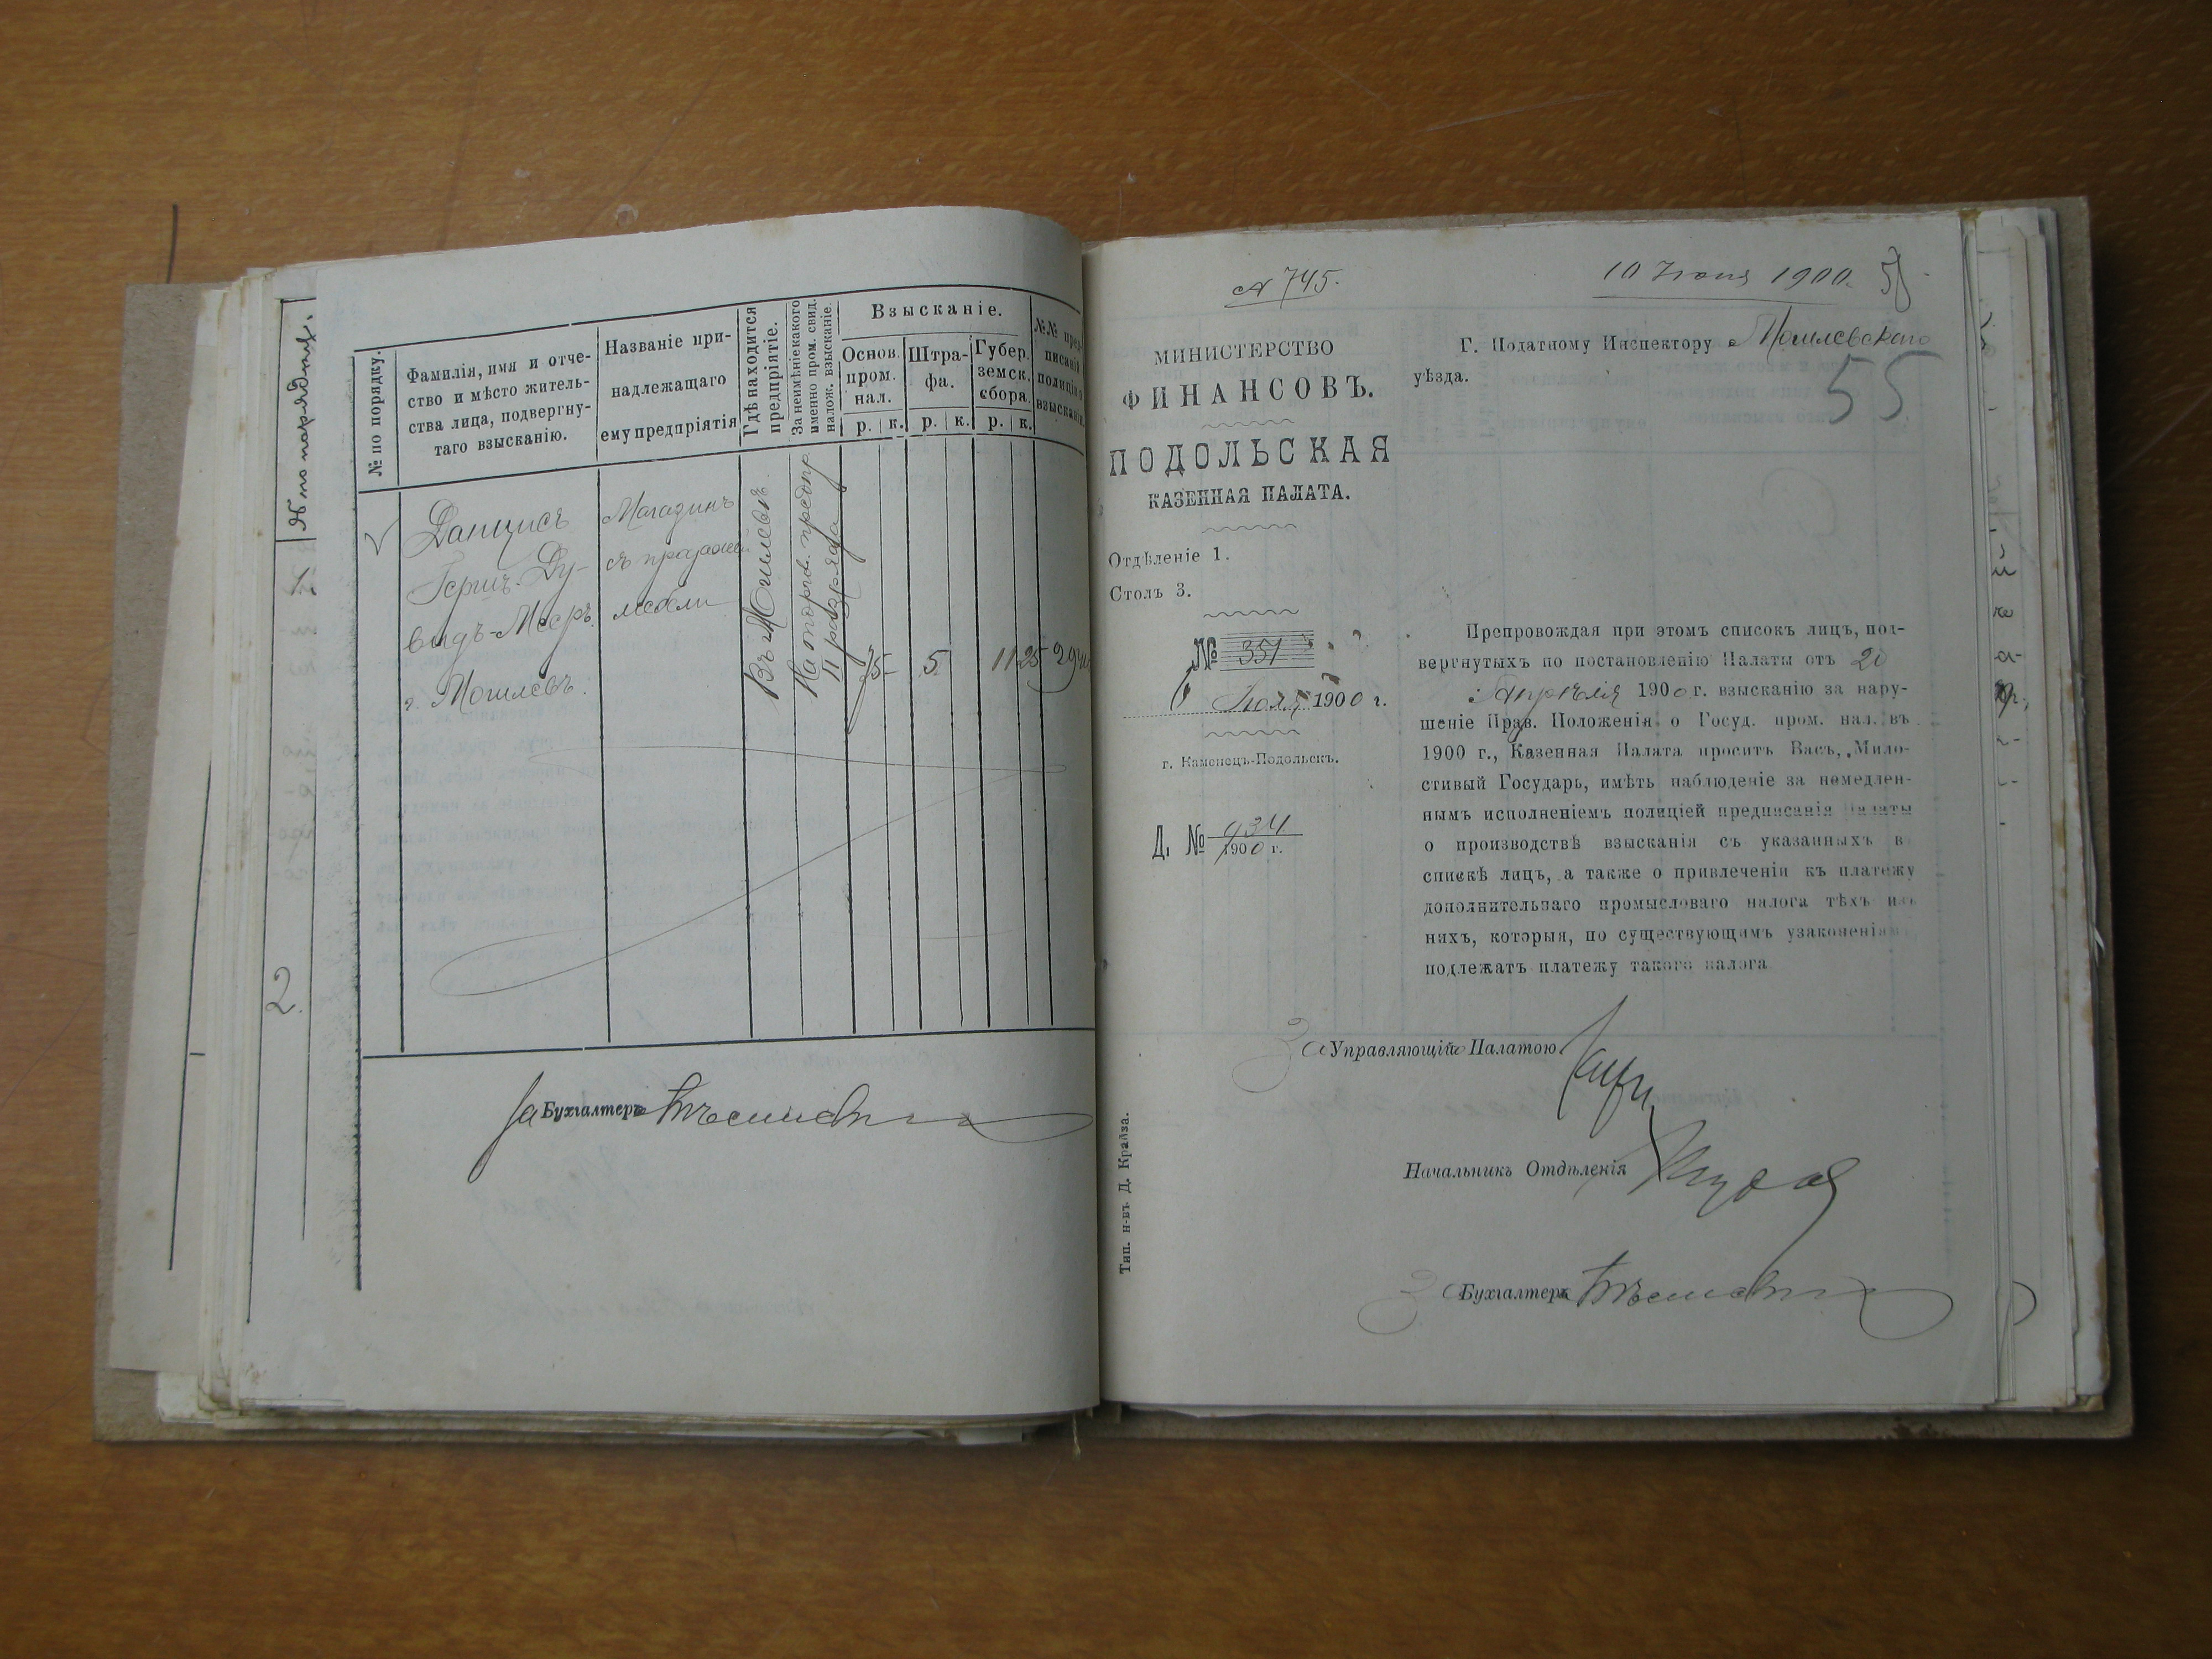 № по порядку.
1
2.
№ по порядку.
Фамилія, имя и отче-
ство и мѣсто житель-
ства лица, подвергну-
таго взысканію.
Названіе при-
надлежащаго
ему предпріятія
Гдѣ находится
предпріятіе.
За неимѣніе какого
именно пром. свид.
налож. взысканіе.
Взысканіе.
Основ.
пром.
нал.
Штра-
фа.
Губер.
земск.
сбора.
р. к. р. к. р. к.
№№ пред-
писаній
полиціи о
взысканіи.
Данцисъ
Герш. Ду-
видъ-Меер.
г. Могилевъ.
Магазинъ
съ продажей
мебели
Въ Могилевѣ
На торгов. предпр.
II разряда
75 - 5 11 25
За Бухгалтера
№ 745.
10 Іюня 1900.
МИНИСТЕРСТВО
ФИНАНСОВЪ.
ПОДОЛЬСКАЯ
КАЗЕННАЯ ПАЛАТА.
Отдѣленіе 1.
Столъ 3.
№ 351
6 Іюня 1900 г.
г. Каменецъ-Подольскъ.
Д. № 934
1900 г.
Тип. н-въ Д. Крайза.
Г. Податному Инспектору Могилевскаго
уѣзда.
55
Препровождая при этомъ списокъ лицъ, под-
вергнутыхъ по постановленію Палаты отъ 20
Апрѣля 1900 г. взысканію за нару-
шеніе Прав. Положенія о Госуд. пром. нал. въ
1900 г., Казенная Палата проситъ Васъ, Мило-
стивый Государь, имѣть наблюденіе за немедлен-
нымъ исполненіемъ полиціей предписанія Палаты
о производствѣ взысканія съ указанныхъ в
спискѣ лицъ, а также о привлеченіи къ платежу
дополнительнаго промысловаго налога тѣхъ изъ
нихъ, которыя, по существующимъ узаконеніямъ
подлежатъ платежу такого налога
За Управляющій Палатою
Начальникъ Отдѣленія
За Бухгалтера